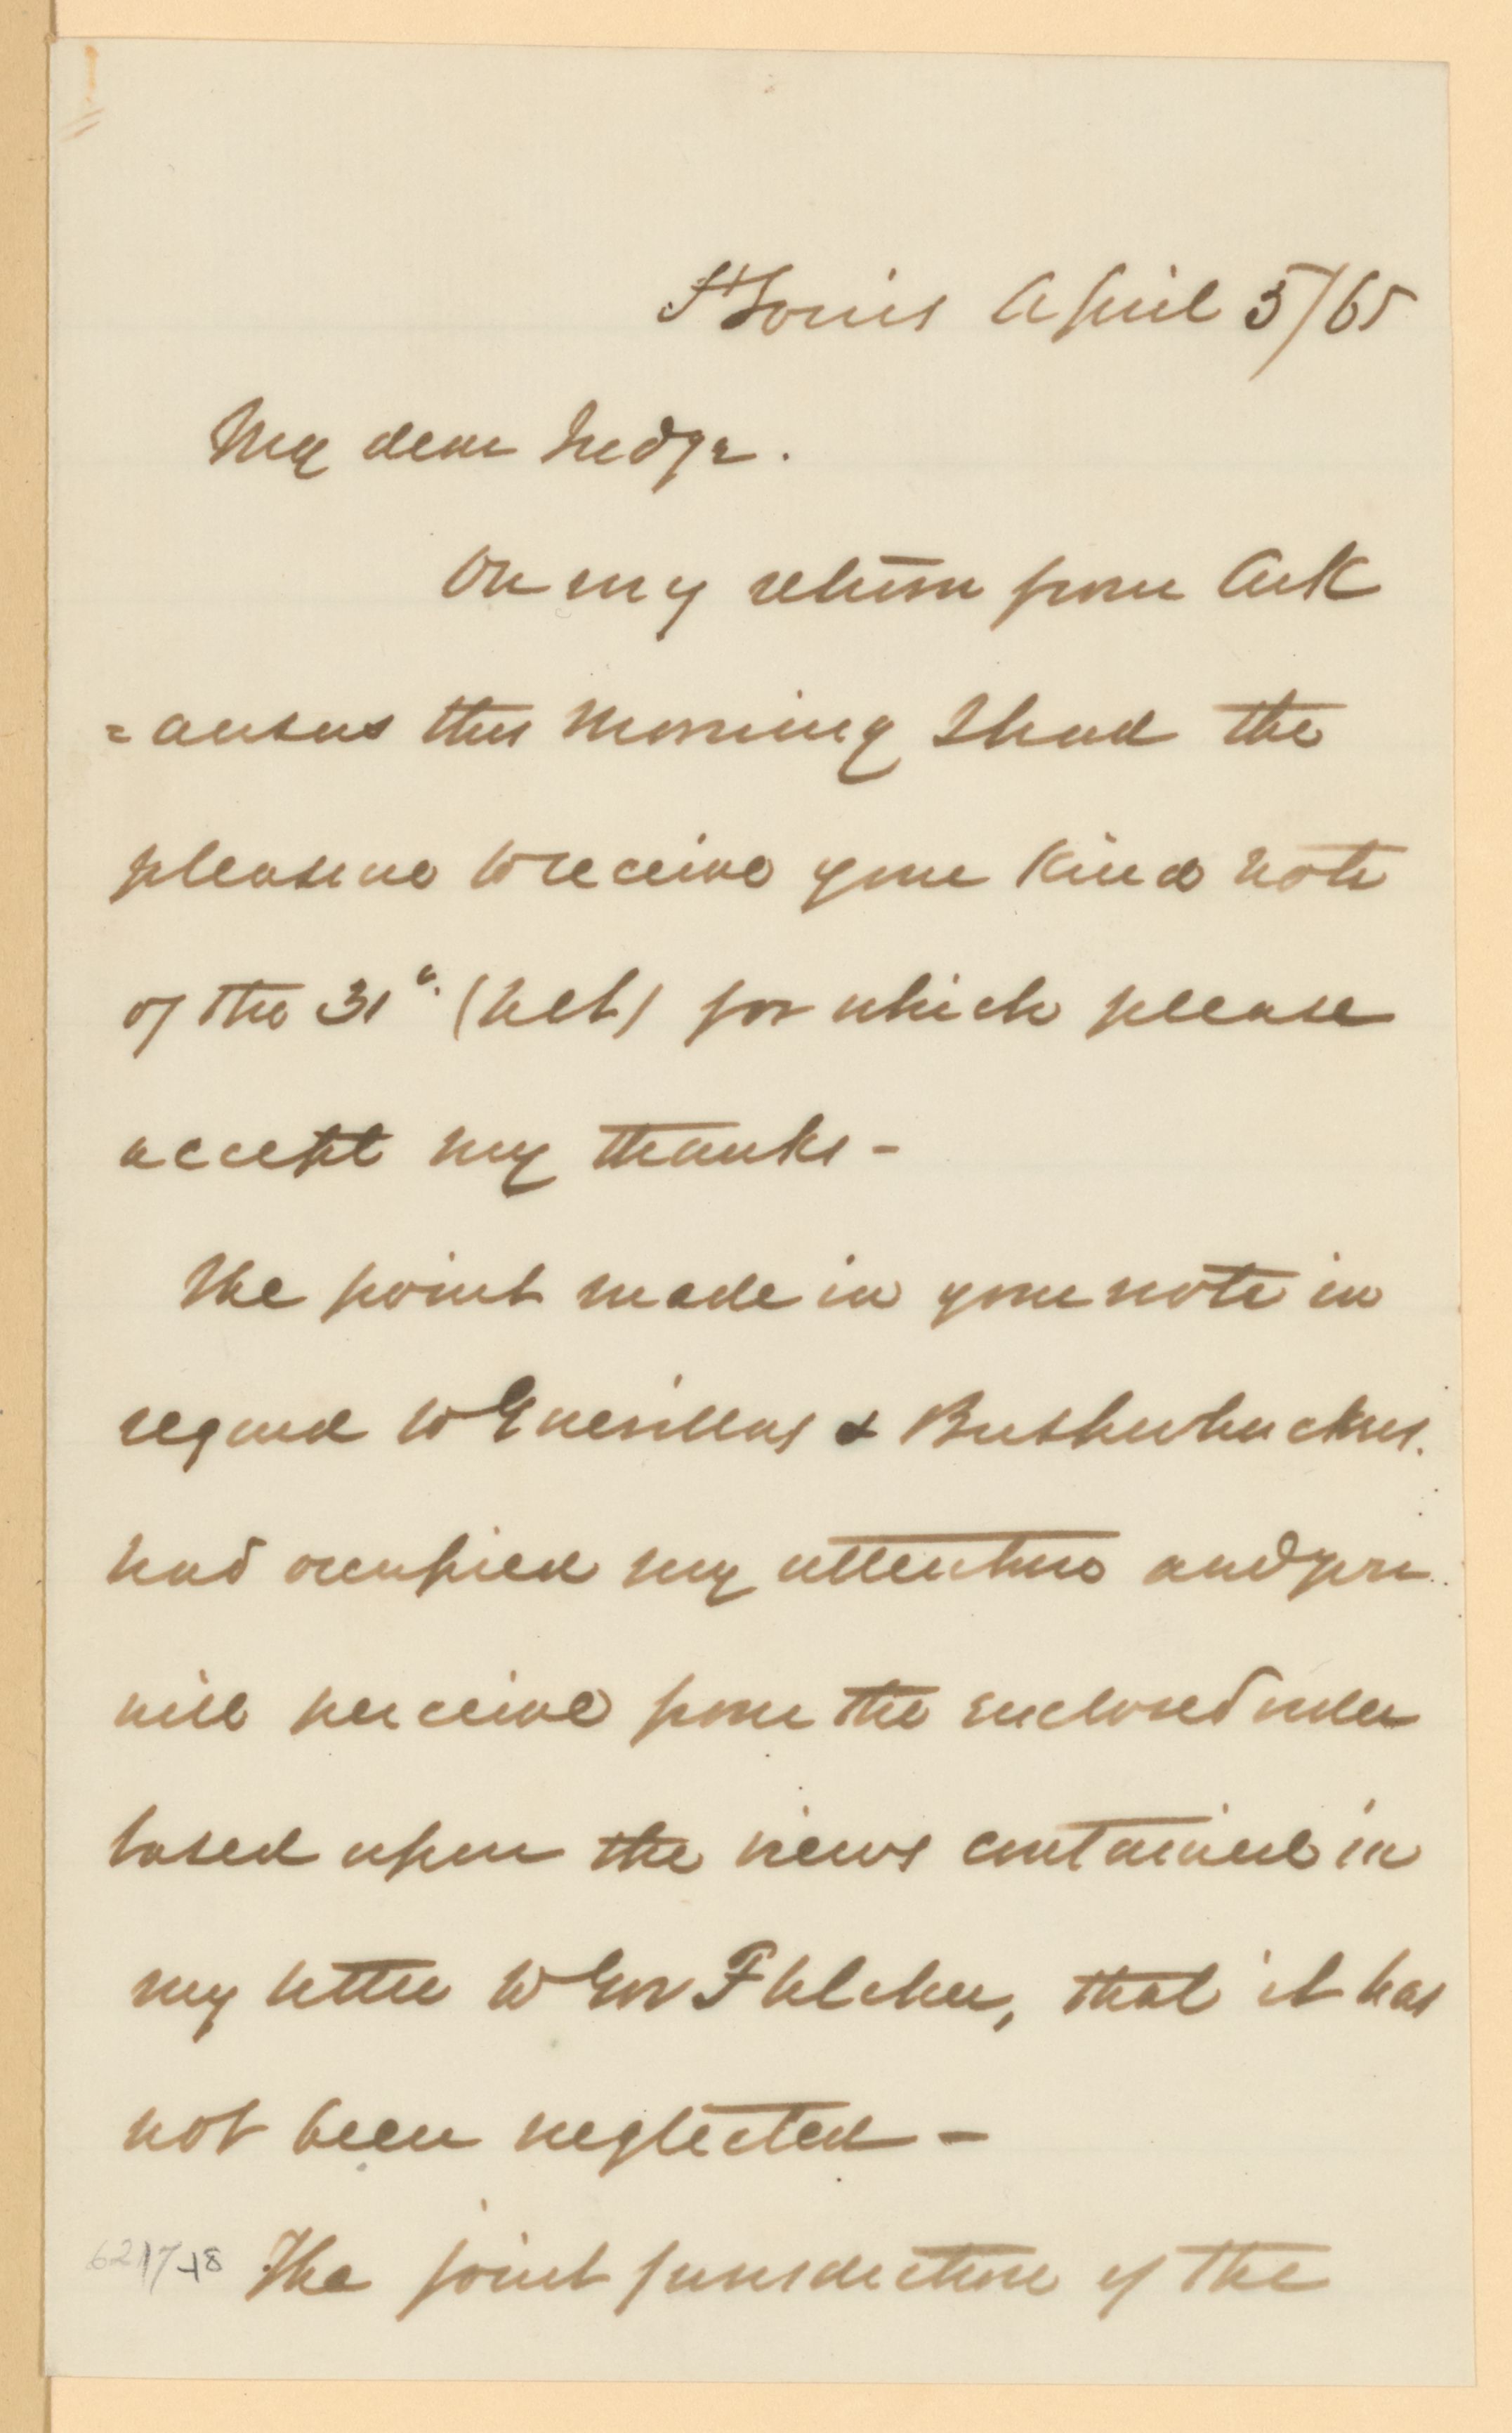 St Louis April 5/65
My dear Judge.
On my return from Ark
=ansas this morning I had the
pleasure to receive your kind note
of the 31". (ult) for which please
accept my thanks -
The point made in your note in
regard to Guerillas & Bushwhackers.
had occupied my attention and you
will perceive from the enclosed order
based upon the views contained in
my letter to Gov Fletcher, that it has
not been neglected -
The joint jurisdiction of the
6217-18